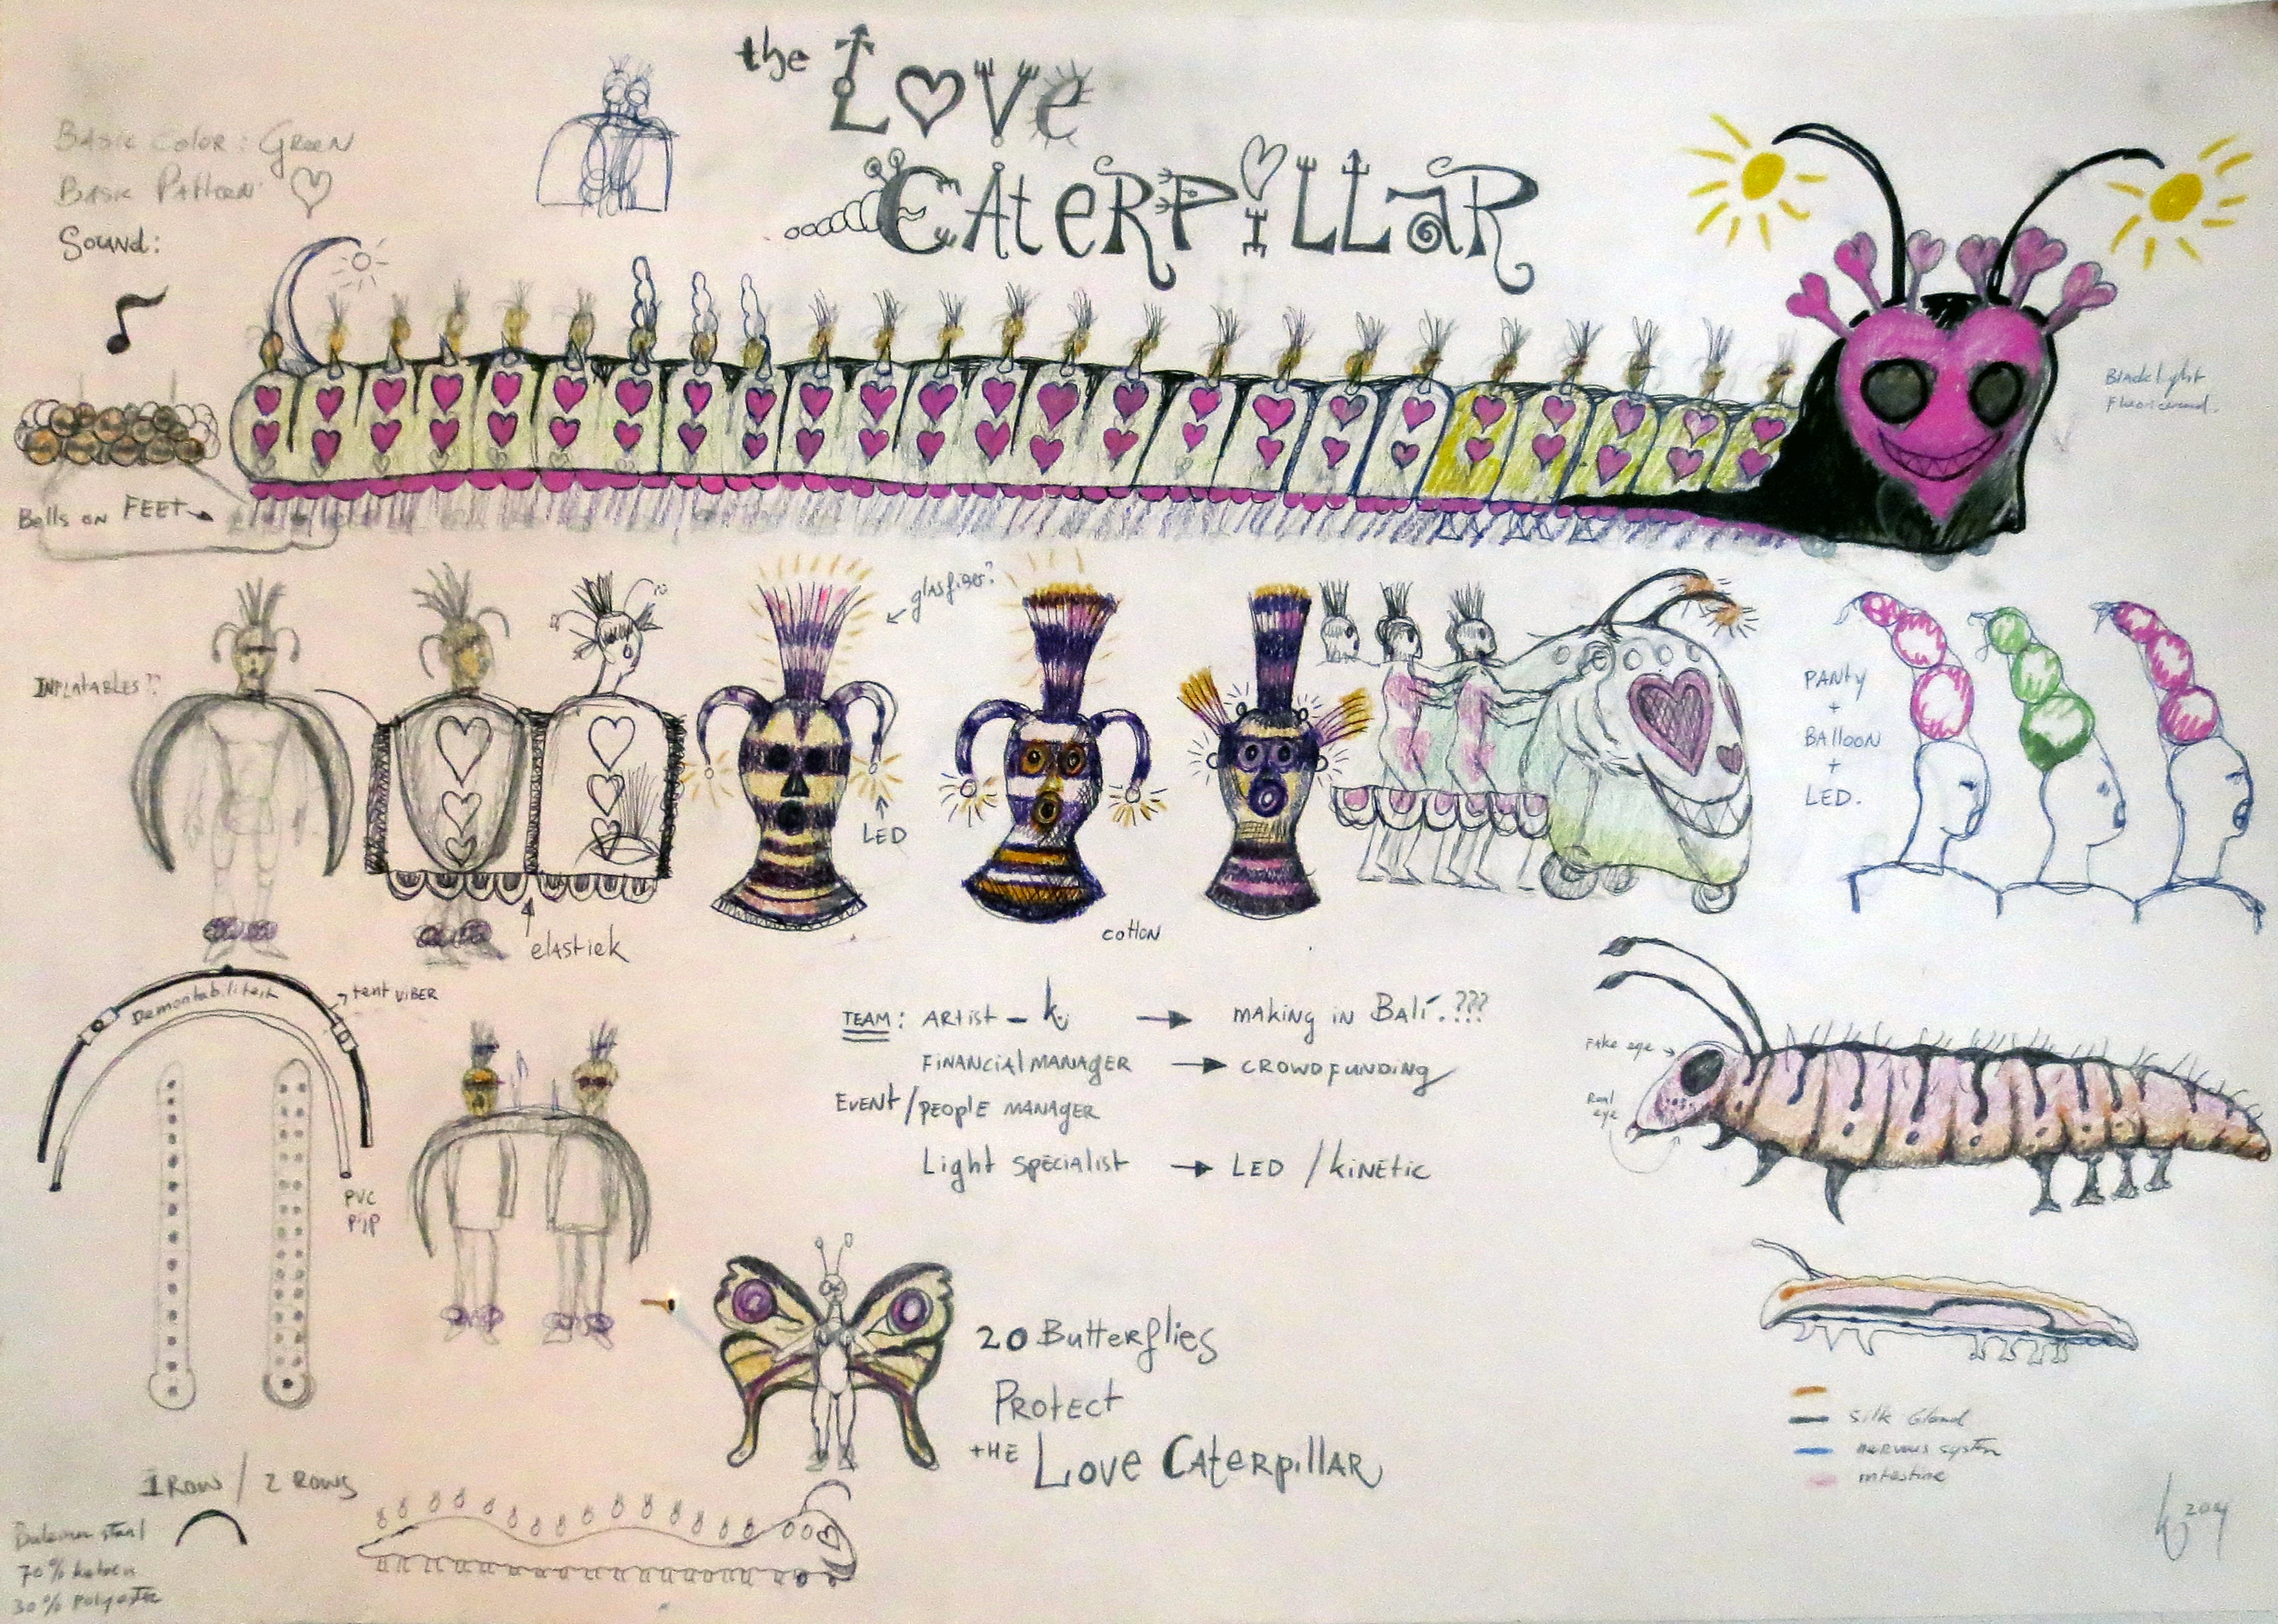 the LOVe
CATeRPiLLaR
BASIC COLOR: GREEN
BASIC PATTERN
SOUND:
Blacklight
Bells on FEET
glasfiber?
INFLATABLES??
PANTY
+
BALLOON
+
LED.
LED
elastiek
cotton
Demontabiliteit
tent VIBER
PVC
PIJP
TEAM: ARTIST - k. → MAKING IN BALI. ???
FINANCIAL MANAGER → CROWDFUNDING
EVENT/PEOPLE MANAGER
Light SPECIALIST → LED / KINETIC
Fake eye
Real
eye
20 Butterflies
PROTECT
tHE LOVE CATERPILLAR
silk Gland
nervous system
intestine
1 ROW / 2 ROWS
70% katoen
30% Polyester